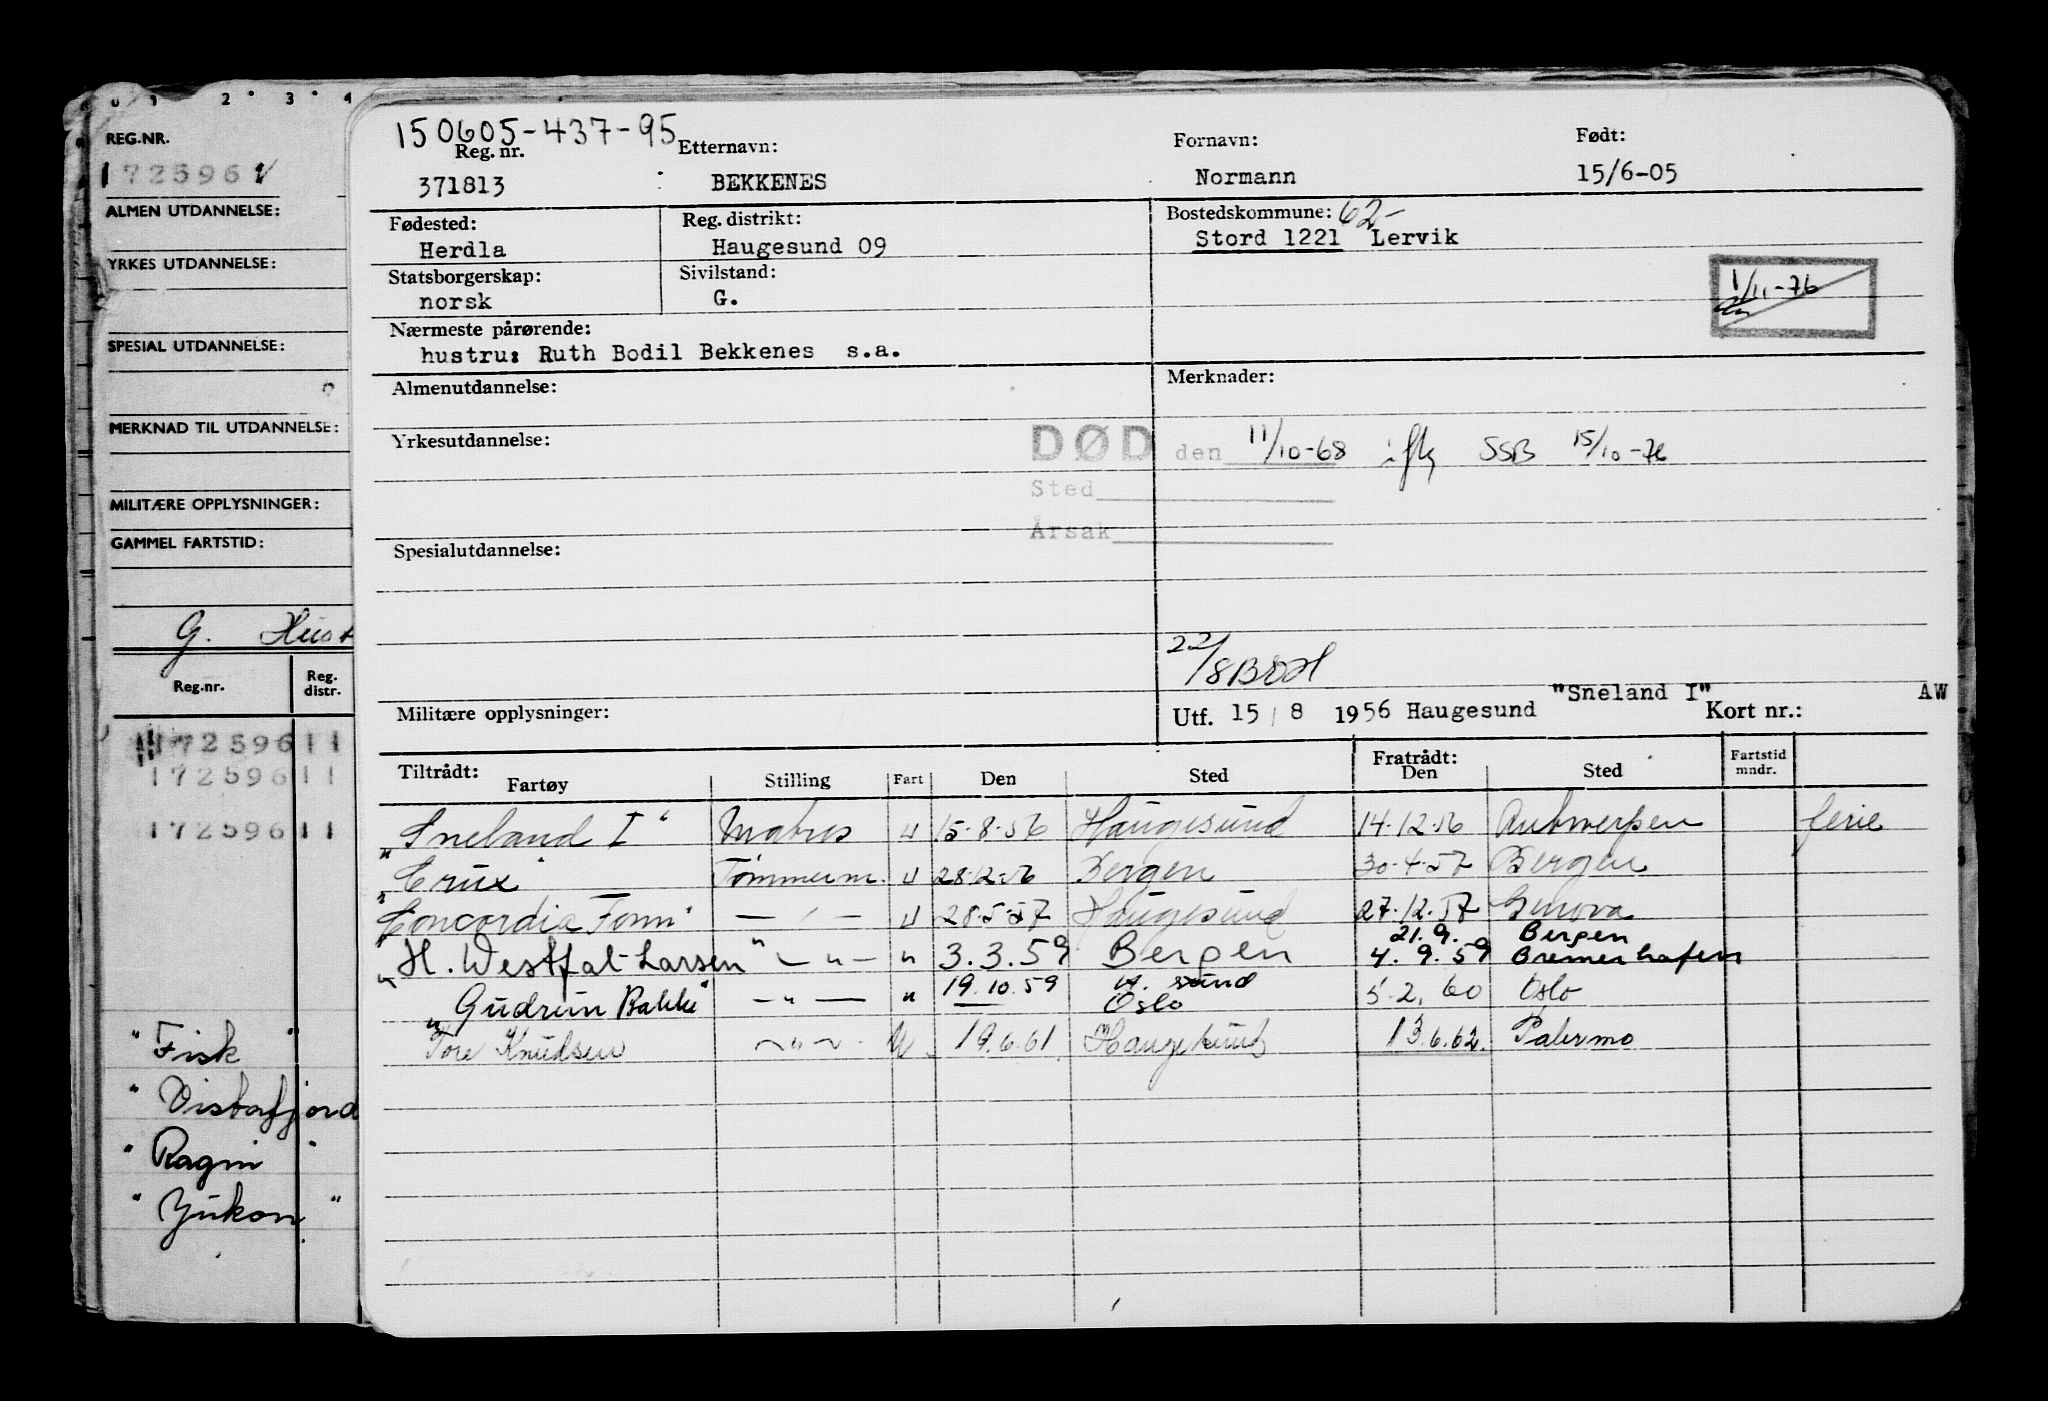 0 1 2 3 4
REG.NR.
ALMEN UTDANNELSE:
YRKES UTDANNELSE:
SPESIAL UTDANNELSE:
MERKNAD TIL UTDANNELSE:
MILITÆRE OPPLYSNINGER:
GAMMEL FARTSTID:
G.
Reg.nr. Reg. distr.
17259611
17259611
17259611
"Fisk"
"
"Ragni"
"Yukon"
150605-437-95
Reg. nr. Etternavn: Fornavn: Født:
371813 BEKKENES Normann 15/6-05
Fødested: Reg. distrikt: Bostedskommune: 62-
Herdla Haugesund 09 Stord 1221 Lervik
Statsborgerskap: Sivilstand:
norsk G.
1/11-76
Nærmeste pårørende:
hustru: Ruth Bodil Bekkenes s.a.
Almenutdannelse: Merknader:
Yrkesutdannelse:
DØD den 11/10-68 iflg SSB 15/10-76
Sted
Årsak
Spesialutdannelse:
22/8
Militære opplysninger: Utf. 15/8 1956 Haugesund "Sneland I" Kort nr.: AW
Tiltrådt: Fratrådt:
Fartøy Stilling Fart Den Sted Den Sted Fartstid mndr.
"Sneland I" Matros U 15-8-56 Haugesund 14-12-56 Antwerpen ferie
"Crux" Tømmerm. U 28-12-56 Bergen 30-4-57 Bergen
"Concordia Fonn" — " — U 28-5-57 Haugesund 27-12-57 Genova
21.9. Bergen
"H. Westfal-Larsen" — " — " 3.3.59 Bergen 4.9.59 Bremerhafen
"Gudrun Bakke" — " — " 19.10.59 H.sund Oslo 5.2.60 Oslo
"Tore Knudsen — " — U 19.6.61 Haugesund 13.6.62. Palermo